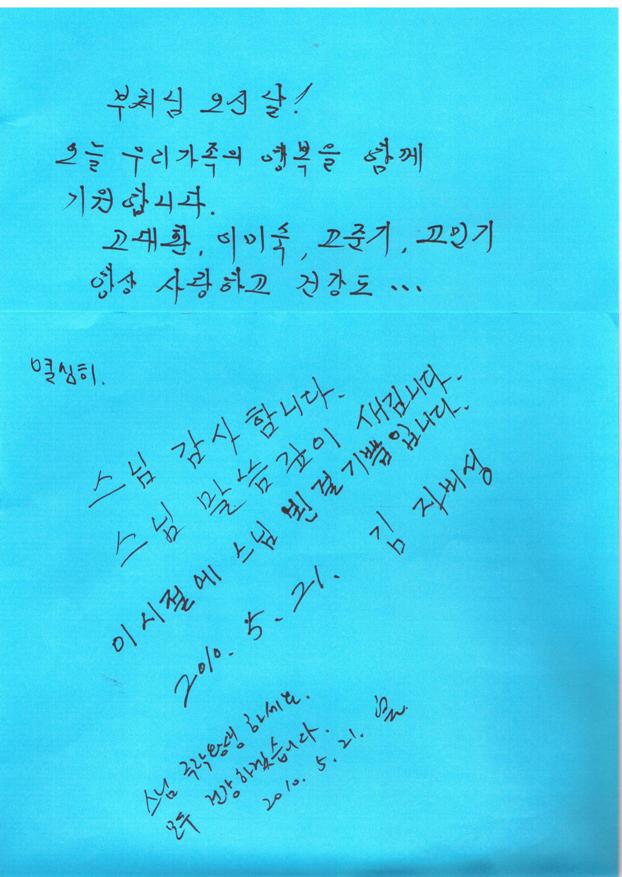 부처님 오신 날!
오늘 우리가족의 행복을 함께
기원합니다.
고대환, 이미숙, 고준기, 고민기
항상 사랑하고 건강도 ...
열심히.
스님 감사 합니다.
스님 말씀 깊이 새깁니다.
이 시절에 스님 뵌걸 기쁨입니다.
2010. 5. 21. 김 자비성
스님 극락왕생 하세요.
모두 건강하겠습니다.
2010. 5. 21.